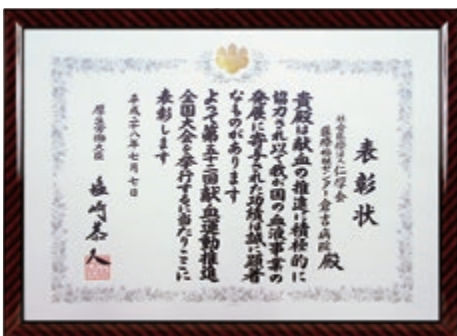 表彰状
社会医療法人仁厚会
医療福祉センター倉吉病院 殿
貴殿は献血の推進に積極的に
協力され以て我が国の血液事業の
発展に寄与された功績は誠に顕著
なものがあります
よつて第五十二回献血運動推進
全国大会を挙行するに当たりここに
表彰します
平成二十八年七月七日
厚生労働大臣 塩崎恭久